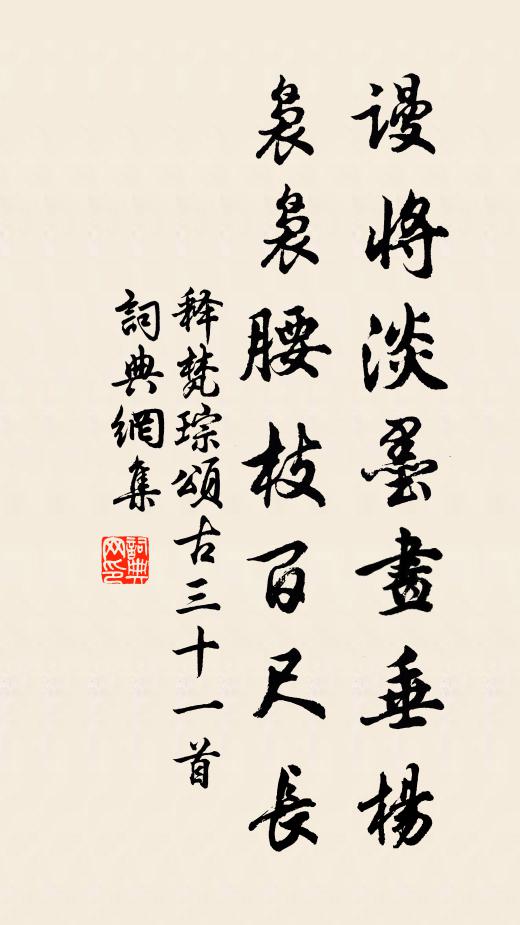 謾將淡墨畫垂楊
裊裊腰枝百尺長
释梵琮頌古三十一首
詞典網集
詞典网印